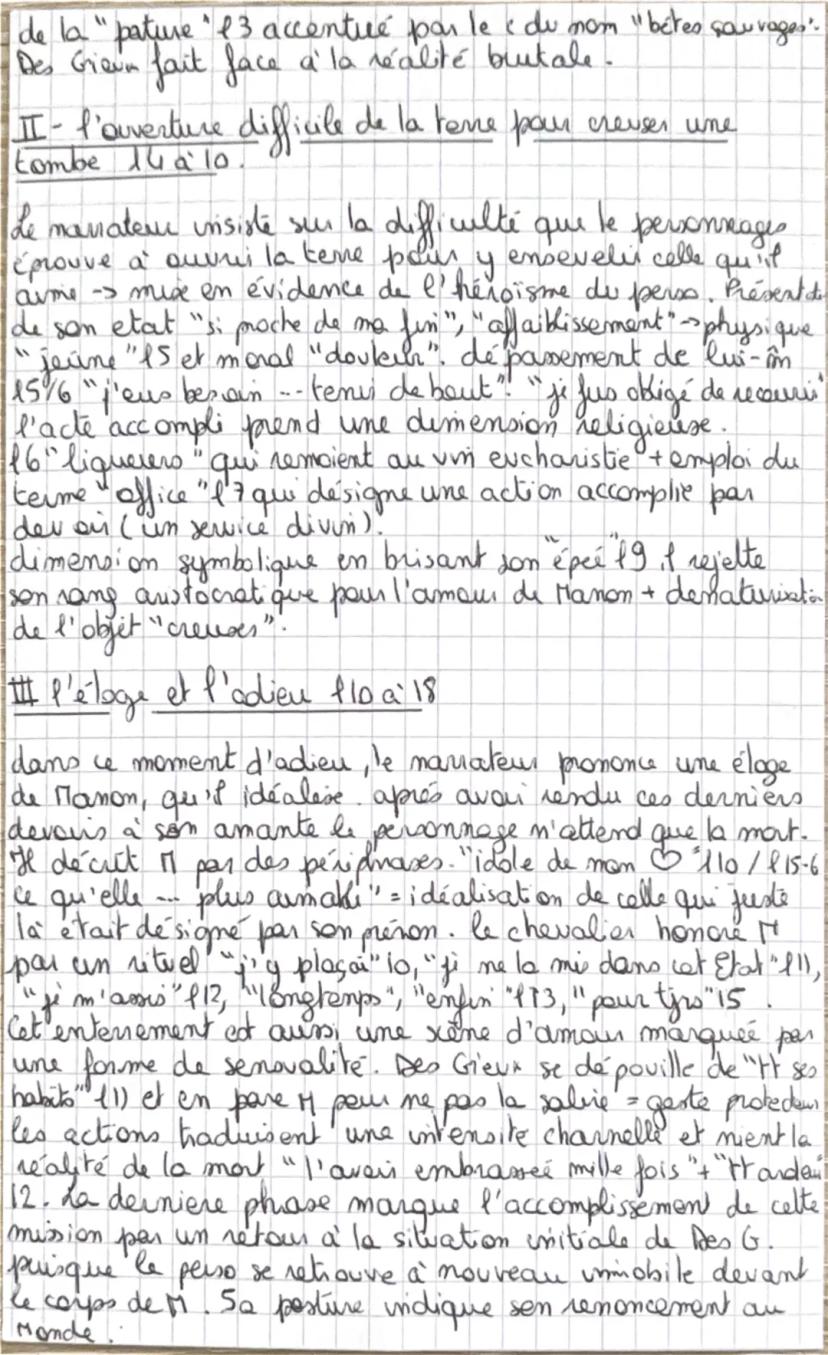 de la "pature" l3 accentué par le c du nom "bêtes sauvages".
Des Grieux fait face à la réalité brutale.
II - l'ouverture difficile de la terre pour creuser une
tombe l4 à 10.
Le narrateur insiste sur la difficulté que le personnages
éprouve à ouvrir la terre pour y ensevelir celle qu'il
aime -> mise en évidence de l'héroïsme du perso. Présent de
de son etat "si proche de ma fin", "affaiblissement" -> physique
"jeûne" l5 et moral "douleur". dépassement de lui-m̂
l5/6 "j'eus besoin ... tenir debout". "je fus obligé de recourir"
l'acte accompli prend une dimension religieuse.
l6 "liqueurs" qui renvoient au vin eucharistie + emploi du
terme "office" l7 qui désigne une action accomplie par
devoir (un service divin).
dimension symbolique en brisant son "épée" l9 il rejette
son rang aristocratique pour l'amour de Manon + dénaturisation
de l'objet "creuser".
III l'éloge et l'adieu l10 à 18
dans ce moment d'adieu, le narrateur prononce une éloge
de Manon, qu'il idéalise. après avoir rendu ces derniers
devoirs à son amante le personnage n'attend que la mort.
Il décrit M par des périphrases. "idole de mon ♡" l10 / l15-6
ce qu'elle ... plus aimable" = idéalisation de celle qui juste
là était désigné par son prénom. le chevalier honore M
par un rituel "j'y plaçai" 10, "je ne la mis dans cet Etat" l11,
"je m'assis" l12, "longtemps", "enfin" l13, "pour tjrs" 15.
Cet enterrement est aussi une scène d'amour marquée par
une forme de sensualité. Des Grieux se dépouille de "tt ses
habits" l11 et en pare M pour ne pas la salir = geste protecteur
les actions traduisent une intensité charnelle et nient la
réalité de la mort "l'avoir embrassée mille fois" + "tt ardeur"
12. La derniere phrase marque l'accomplissement de cette
mission par un retour à la situation initiale de Des G.
puisque le perso se retrouve à nouveau immobile devant
le corps de M. Sa posture indique son renoncement au
Monde.